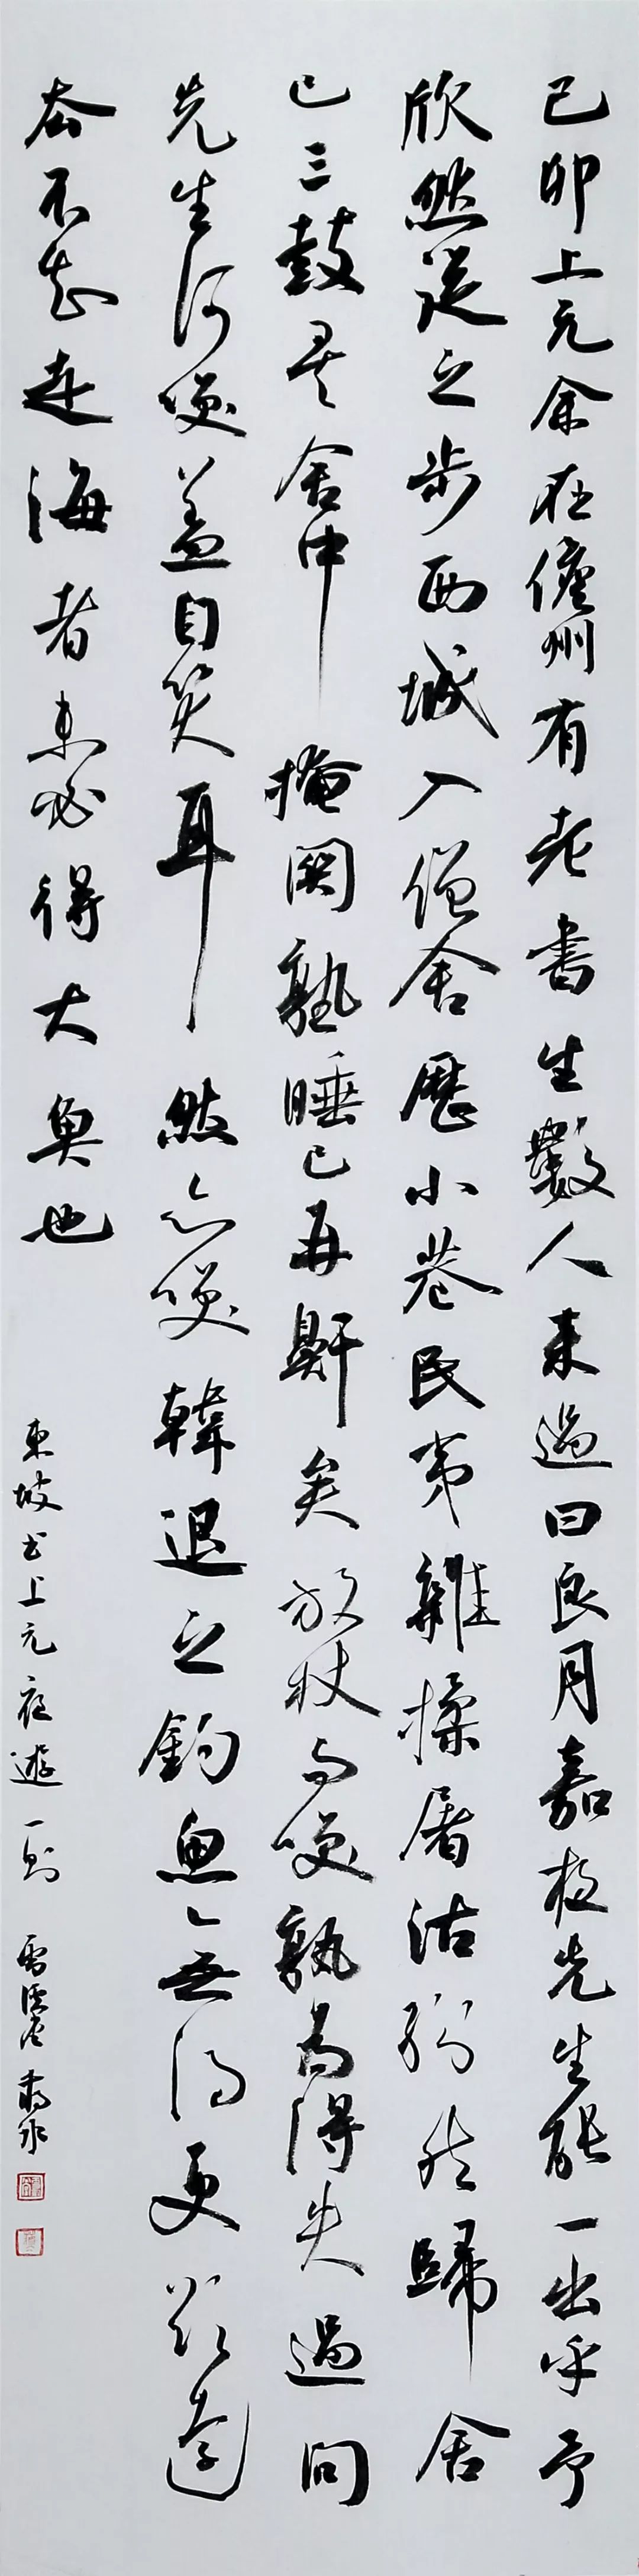 己卯上元余在儋州有老書生數人來過曰良月嘉夜先生能一出乎予
欣然從之步西城入僧舍歷小巷民夷雜揉屠沽紛然歸舍
已三鼓矣舍中掩關熟睡已再鼾矣放杖而笑孰為得失過問
先生何笑蓋自笑耳然亦笑韓退之釣魚〻無得更欲遠
去不知走海者未必得大魚也
東坡書上元夜遊一則